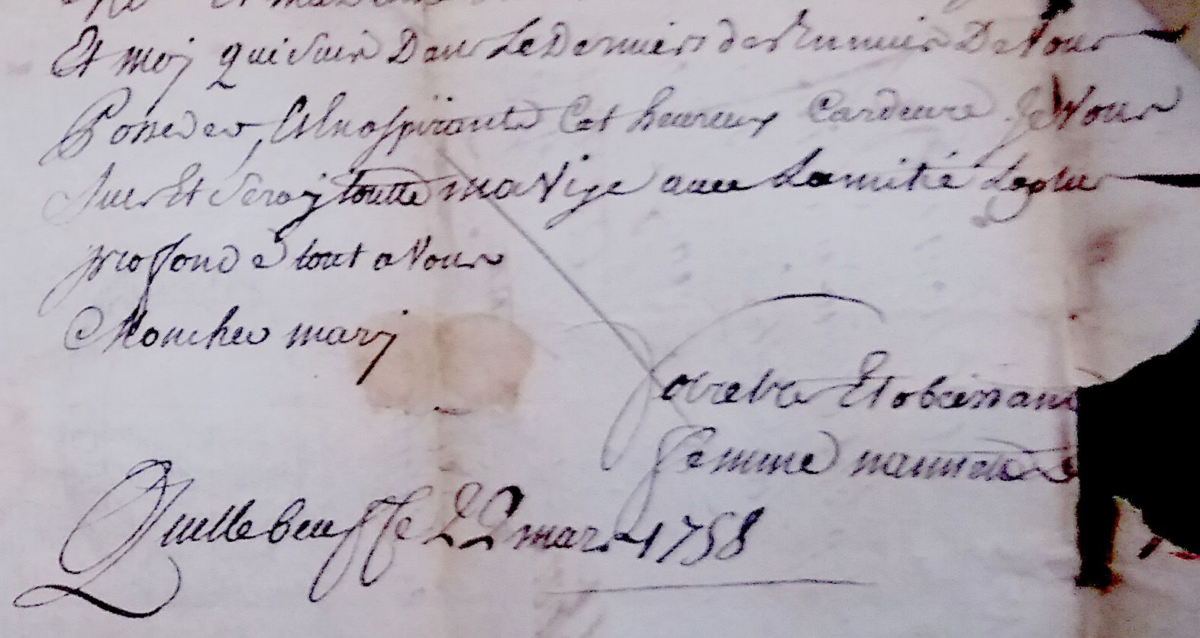 Et moy qui suis Dans Le Dernier des Ennuis De Vous
Posseder, Et En aspirante Cet heureux Car deure Je Vous
Suis Et Seray toutte ma Vye avec Lamitié Laplus
profonde tout a Vous
Mon cher mary
Et obeissante
femme nannette
Quillebeuf Ce 22 mars 1758